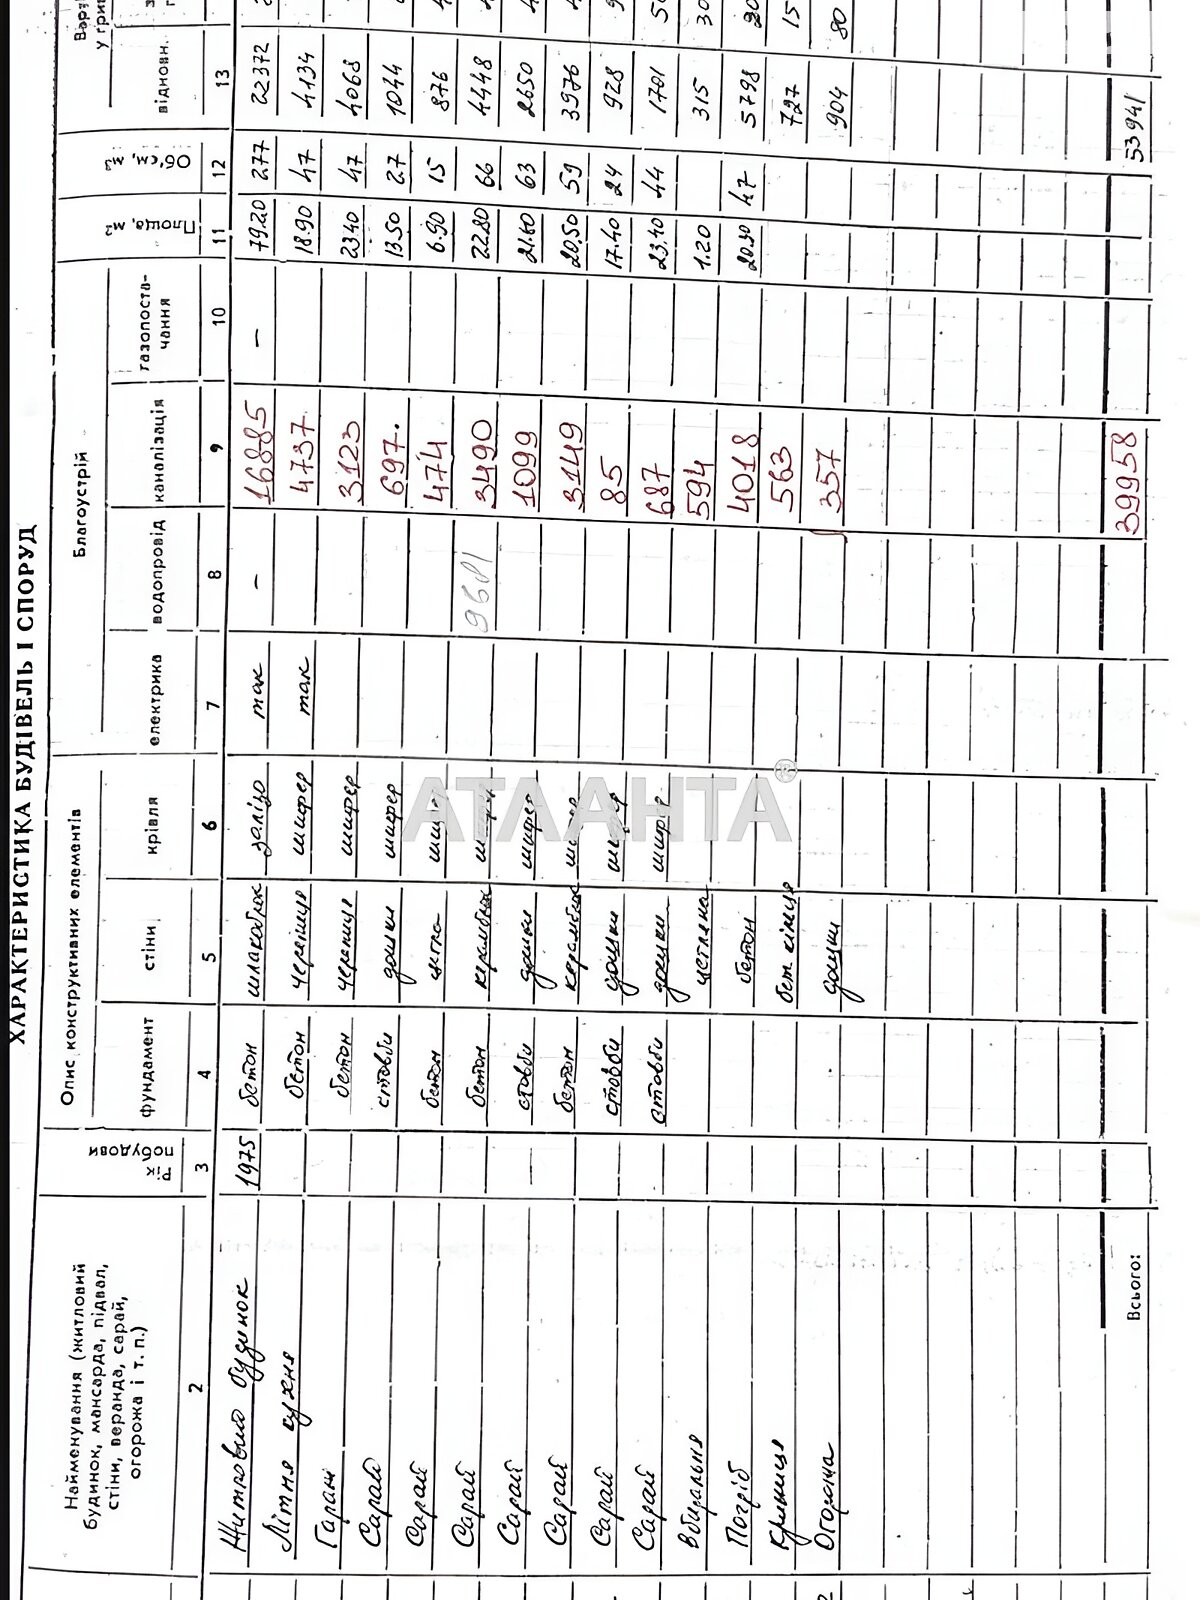 ХАРАКТЕРИСТИКА БУДІВЕЛЬ І СПОРУД
Найменування (житловий будинок, мансарда, підвал, стіни, веранда, сарай, огорожа і т. п.)
Рік побудови
Опис конструктивних елементів
фундамент
стіни
крівля
Благоустрій
електрика
водопровід
каналізація
газопоста-
чання
Площа, м²
Об'єм, м³
відновн.
2 3 4 5 6 7 8 9 10 11 12 13
Житловий будинок 1975 бетон шлакоблок залізо так – 16885 – 79.20 277 22372
Літня кухня бетон черепиця шифер так 4737 18.90 47 4134
Гараж бетон черепиця шифер 3123 23.40 47 4068
Сарай стовби дошки шифер 697 13.50 27 1044
Сарай бетон цегла шифер 474 6.90 15 876
Сарай бетон шифер 9681 3490 22.80 66 4448
Сарай стовби дошки шифер 1099 21.60 63 2650
Сарай бетон шифер 3149 20.50 59 3976
Сарай стовби дошки шифер 85 17.40 24 928
Сарай стовби дошки шифер 687 23.40 44 1701
Вбиральня цегляна 594 1.20 315
Погріб бетон 4018 20.90 47 5798
Криниця бет кільця 563 727
Огорожа дошки 357 904
Всього: 39958 53941
АТЛАНТА®